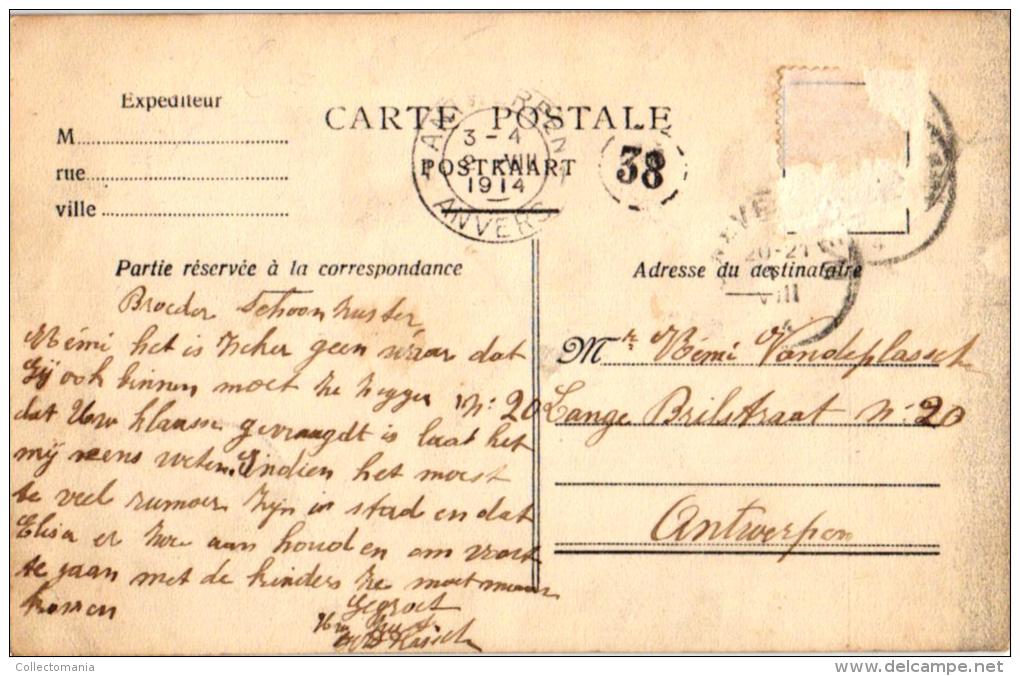 Expediteur
CARTE POSTALE
POSTKAART
M
rue
ville
3-4
VIII
1914
ANVERS
38
20-21
VIII
Partie réservée à la correspondance
Adresse du destinataire
Broeder Schoonzuster,
Rémi het is zeker geen waar dat
gij ook binnen moet ze zeggen
dat Uw klasse gevraagdt is laat het
mij eens weten. Indien het moest
te veel rumoer zijn in stad en dat
Elisa er aan houden om voort
te gaan met de kinders ze moet maar
komen
Gegroet
Mr Rémi Vandeplassch
Lange Brilstraat No 20
Antwerpen
Collectomania
delcampe.net